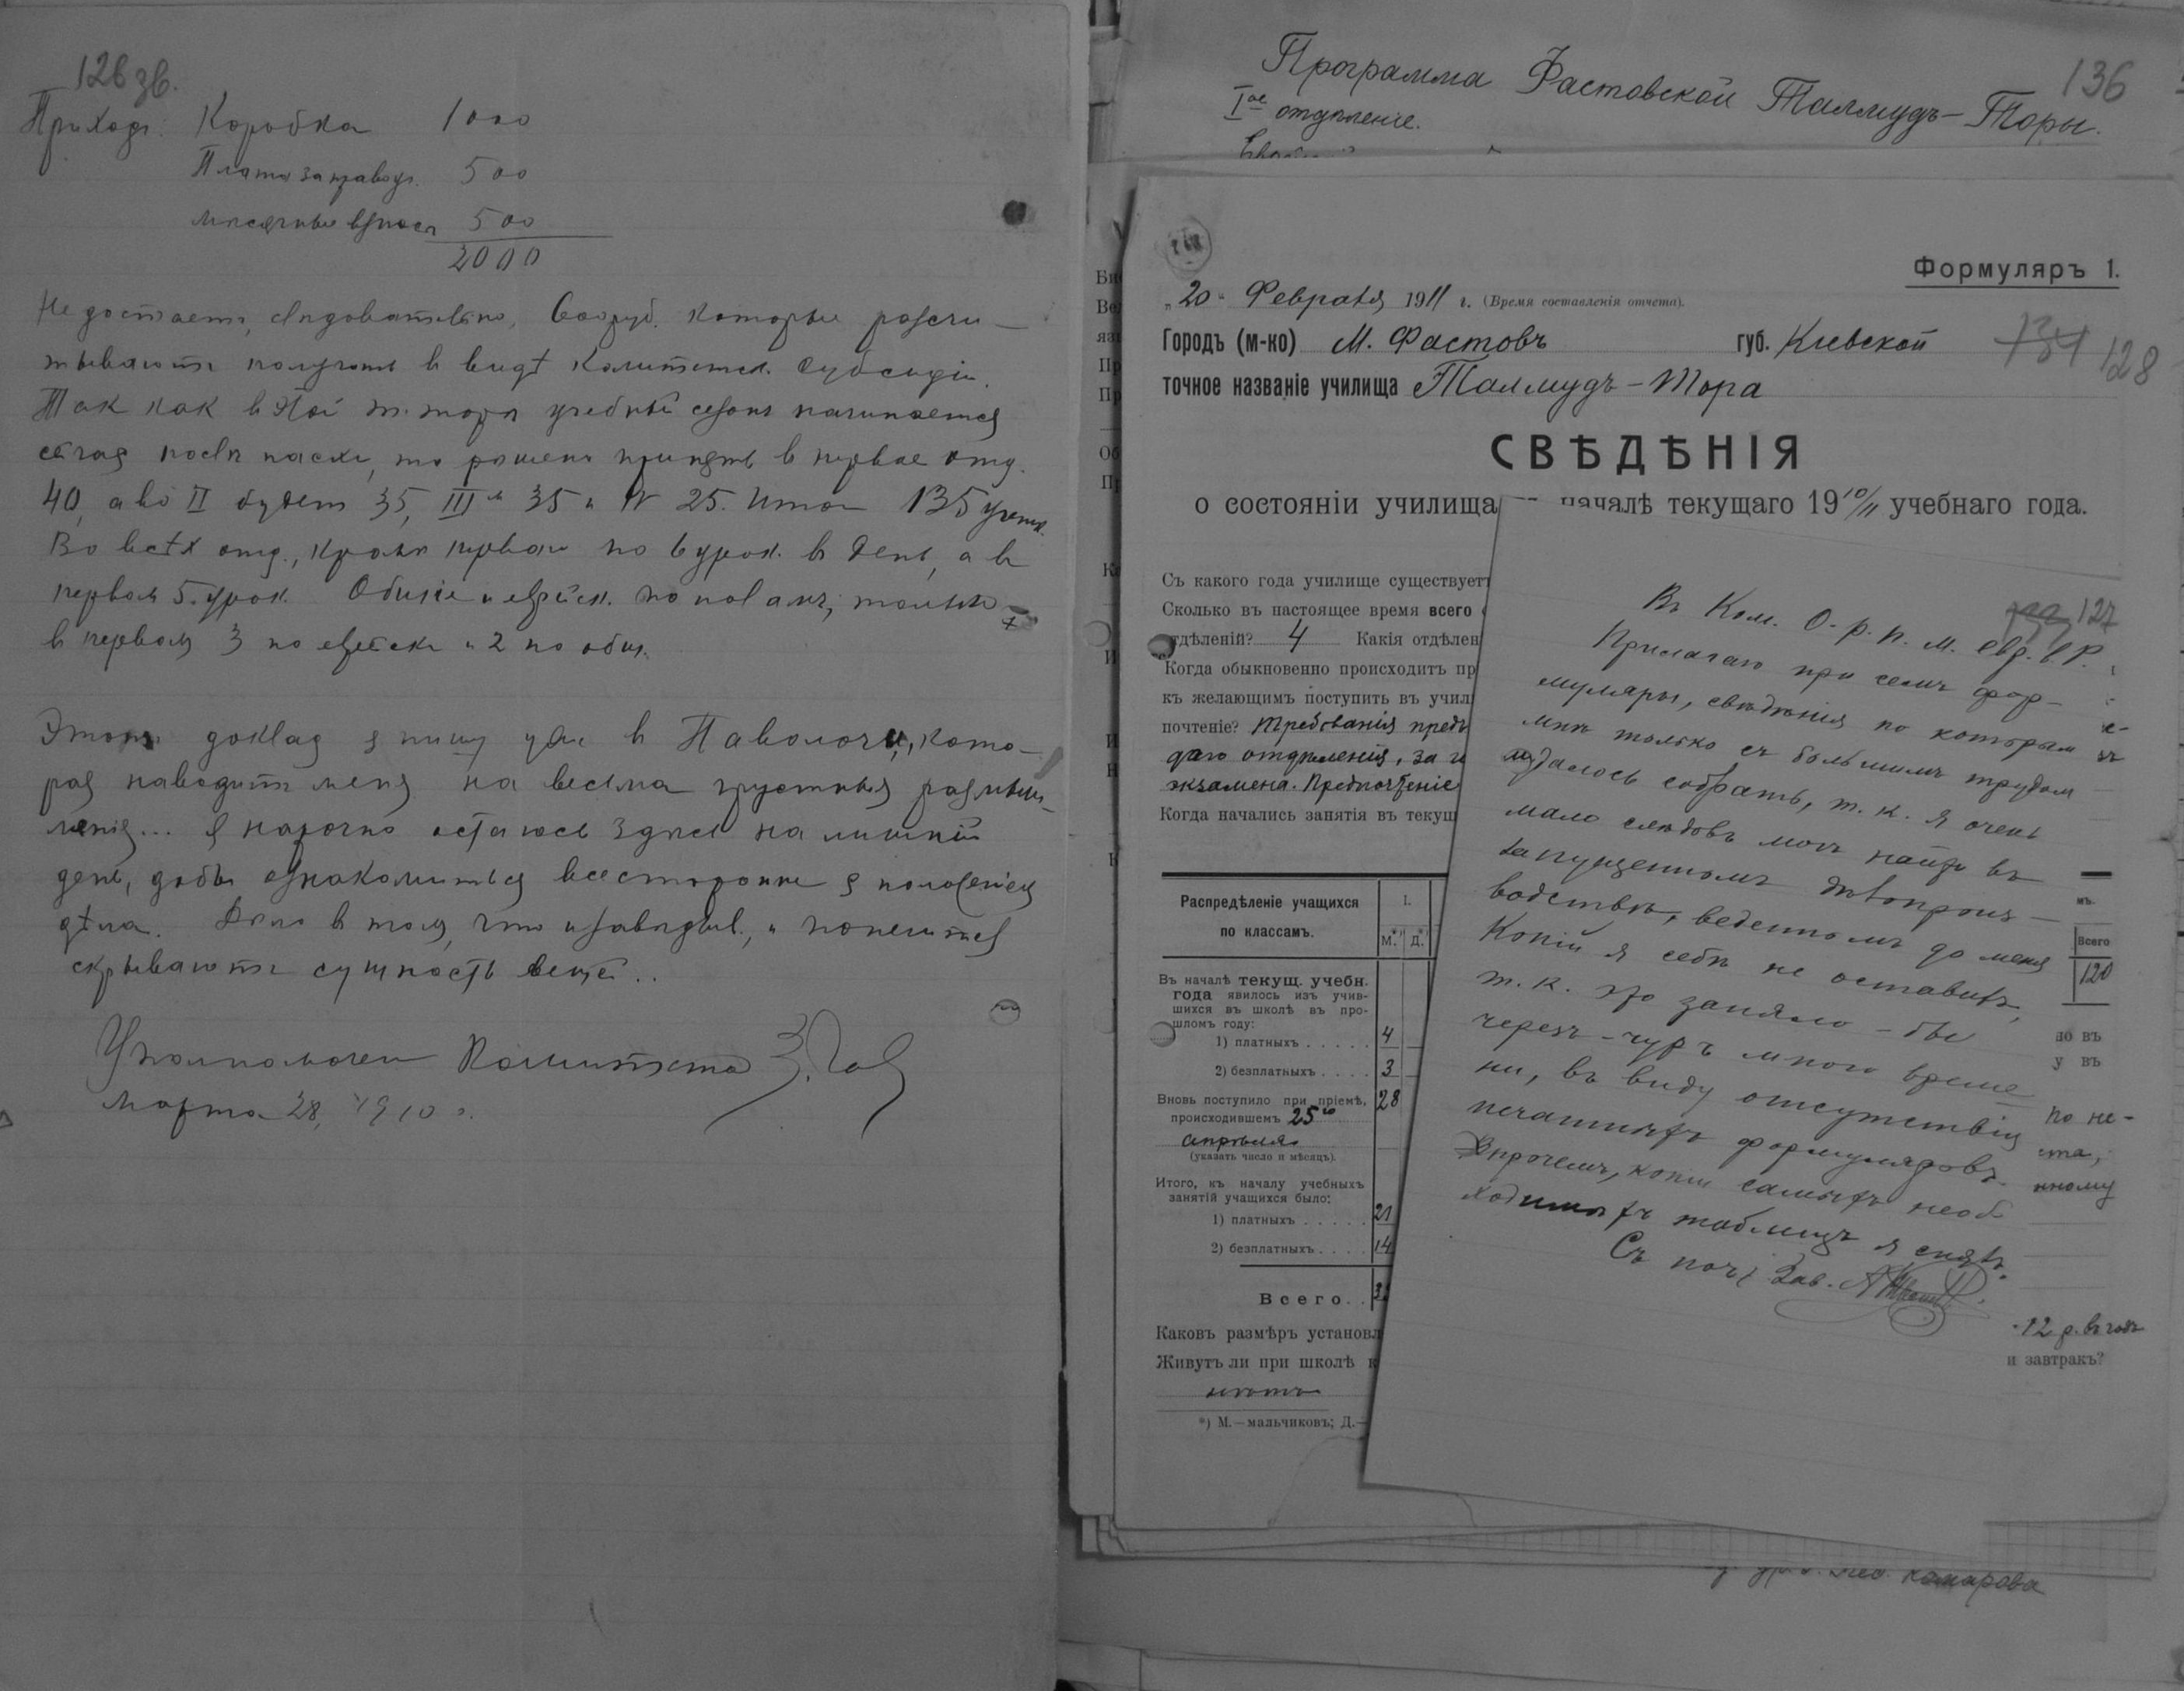 126 зв.
Приходъ: Коробка 1000
Плата за правоуч. 500
мѣсячные взносы 500
2000
Не достаетъ, слѣдовательно, 600 руб. которые разсчи-
тываютъ получить в видѣ Комитетск. субсидіи.
Так как в этой т. торѣ учебный сезонъ начинается
сейчас послѣ пасхи, то рѣшено принять в первое отд.
40, а во II будет 35, III 35 и IV 25. Итого 135 учен.
Во всѣх отд., кромѣ перваго по 6 урок. в день, а в
первом 5 урок. Общіе и еврейск. пополамъ, только
в первом 3 по еврейски и 2 по общ.
Этотъ доклад я пишу уже в Паволочи, кото-
рая наводитъ меня на весьма грустныя размыш-
ленія... Я нарочно остаюсь здѣсь на лишній
день, дабы ознакомиться всесторонне с положеніем
дѣла. Дѣло в том, что и завѣдыв., и попечител
скрываютъ сущность вещей..
Уполномочен Комитета
Марта 28, 1910 г.
136
Программа Фастовской Талмудъ-Торы.
Iое отдѣленіе.
Формуляръ 1.
„20" Февраля 1911 г. (Время составленія отчета).
Городъ (м-ко) М. Фастовъ губ. Кіевской
134 128
точное названіе училища Талмудъ-Тора
СВѢДѢНІЯ
о состояніи училища началѣ текущаго 1910/11 учебнаго года.
Съ какого года училище существует
Сколько въ настоящее время всего
отдѣленій? 4 Какія отдѣлен
Когда обыкновенно происходитъ пр
къ желающимъ поступить въ учил
почтеніе? Требованія предъ
даго отдѣленія, за и
экзамена. Предпочтеніе
Когда начались занятія въ текущ
Распредѣленіе учащихся
по классамъ.
I.
М.*) Д.*)
Въ началѣ текущ. учебн.
года явилось изъ учив-
шихся въ школѣ въ про-
шломъ году:
1) платныхъ . . . . . 4
2) безплатныхъ . . . . 3
Вновь поступило при пріемѣ, 28
происходившемъ 25го
апрѣля
(указать число и мѣсяцъ).
Итого, къ началу учебныхъ
занятій учащихся было:
1) платныхъ . . . . . 21
2) безплатныхъ . . . . 14
Всего. .
Каковъ размѣръ установл
Живутъ ли при школѣ
нѣтъ
*) М.—мальчиковъ; Д.—
127
Въ Ком. О. р. п. м. Евр. в Р.
Прилагаю при семъ фор-
муляры, свѣдѣнія по которым
мнѣ только съ большимъ трудом
удалось собрать, т. к. я очень
мало слѣдовъ могъ найти въ
запущенномъ дѣлопроиз-
водствѣ, веденномъ до меня
Копій я себѣ не оставилъ,
т. к. это заняло-бы
черезъ-чуръ много време
ни, въ виду отсутствія
печатныхъ формуляровъ.
Впрочемъ, копіи самыхъ необ
ходимыхъ таблицъ я снялъ.
Съ поч. Зав.
мъ.
Всего
120
но въ
у въ
по не-
нному
12 р. въ годъ
и завтракъ?
Комарова